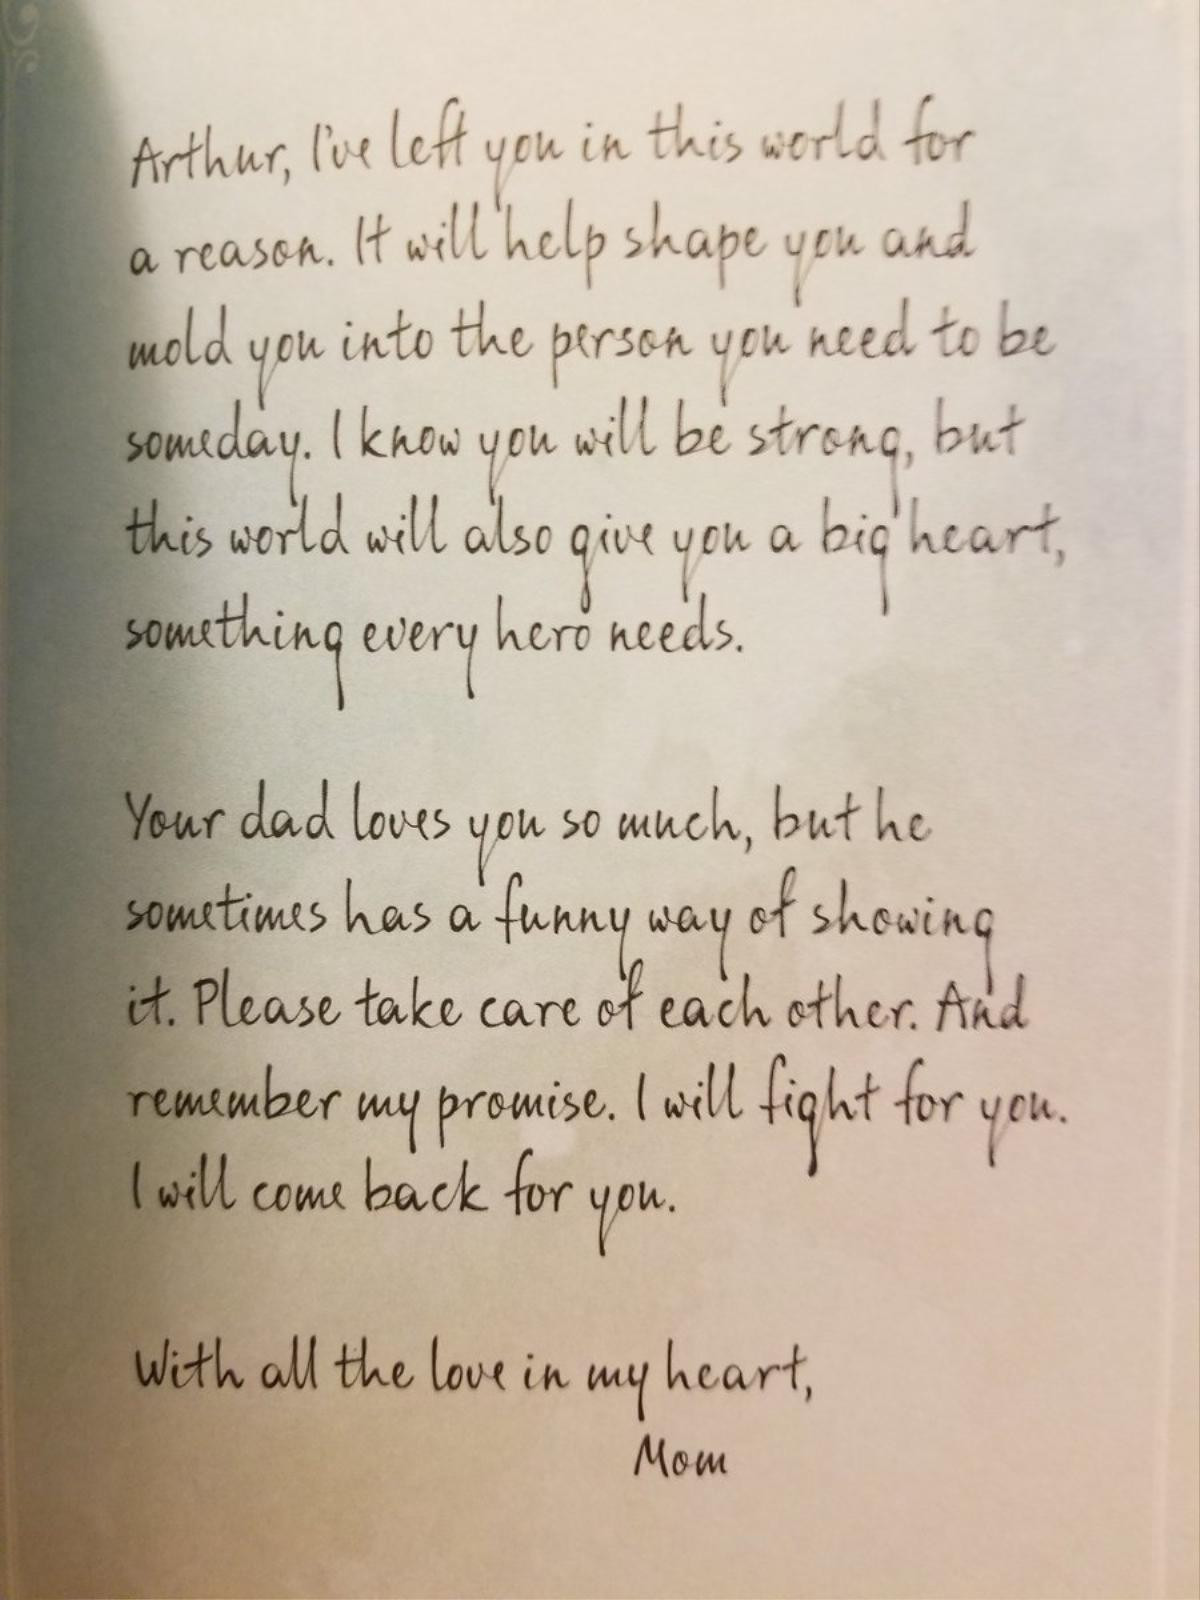 Arthur, I've left you in this world for
a reason. It will help shape you and
mold you into the person you need to be
someday. I know you will be strong, but
this world will also give you a big heart,
something every hero needs.
Your dad loves you so much, but he
sometimes has a funny way of showing
it. Please take care of each other. And
remember my promise. I will fight for you.
I will come back for you.
With all the love in my heart,
Mom